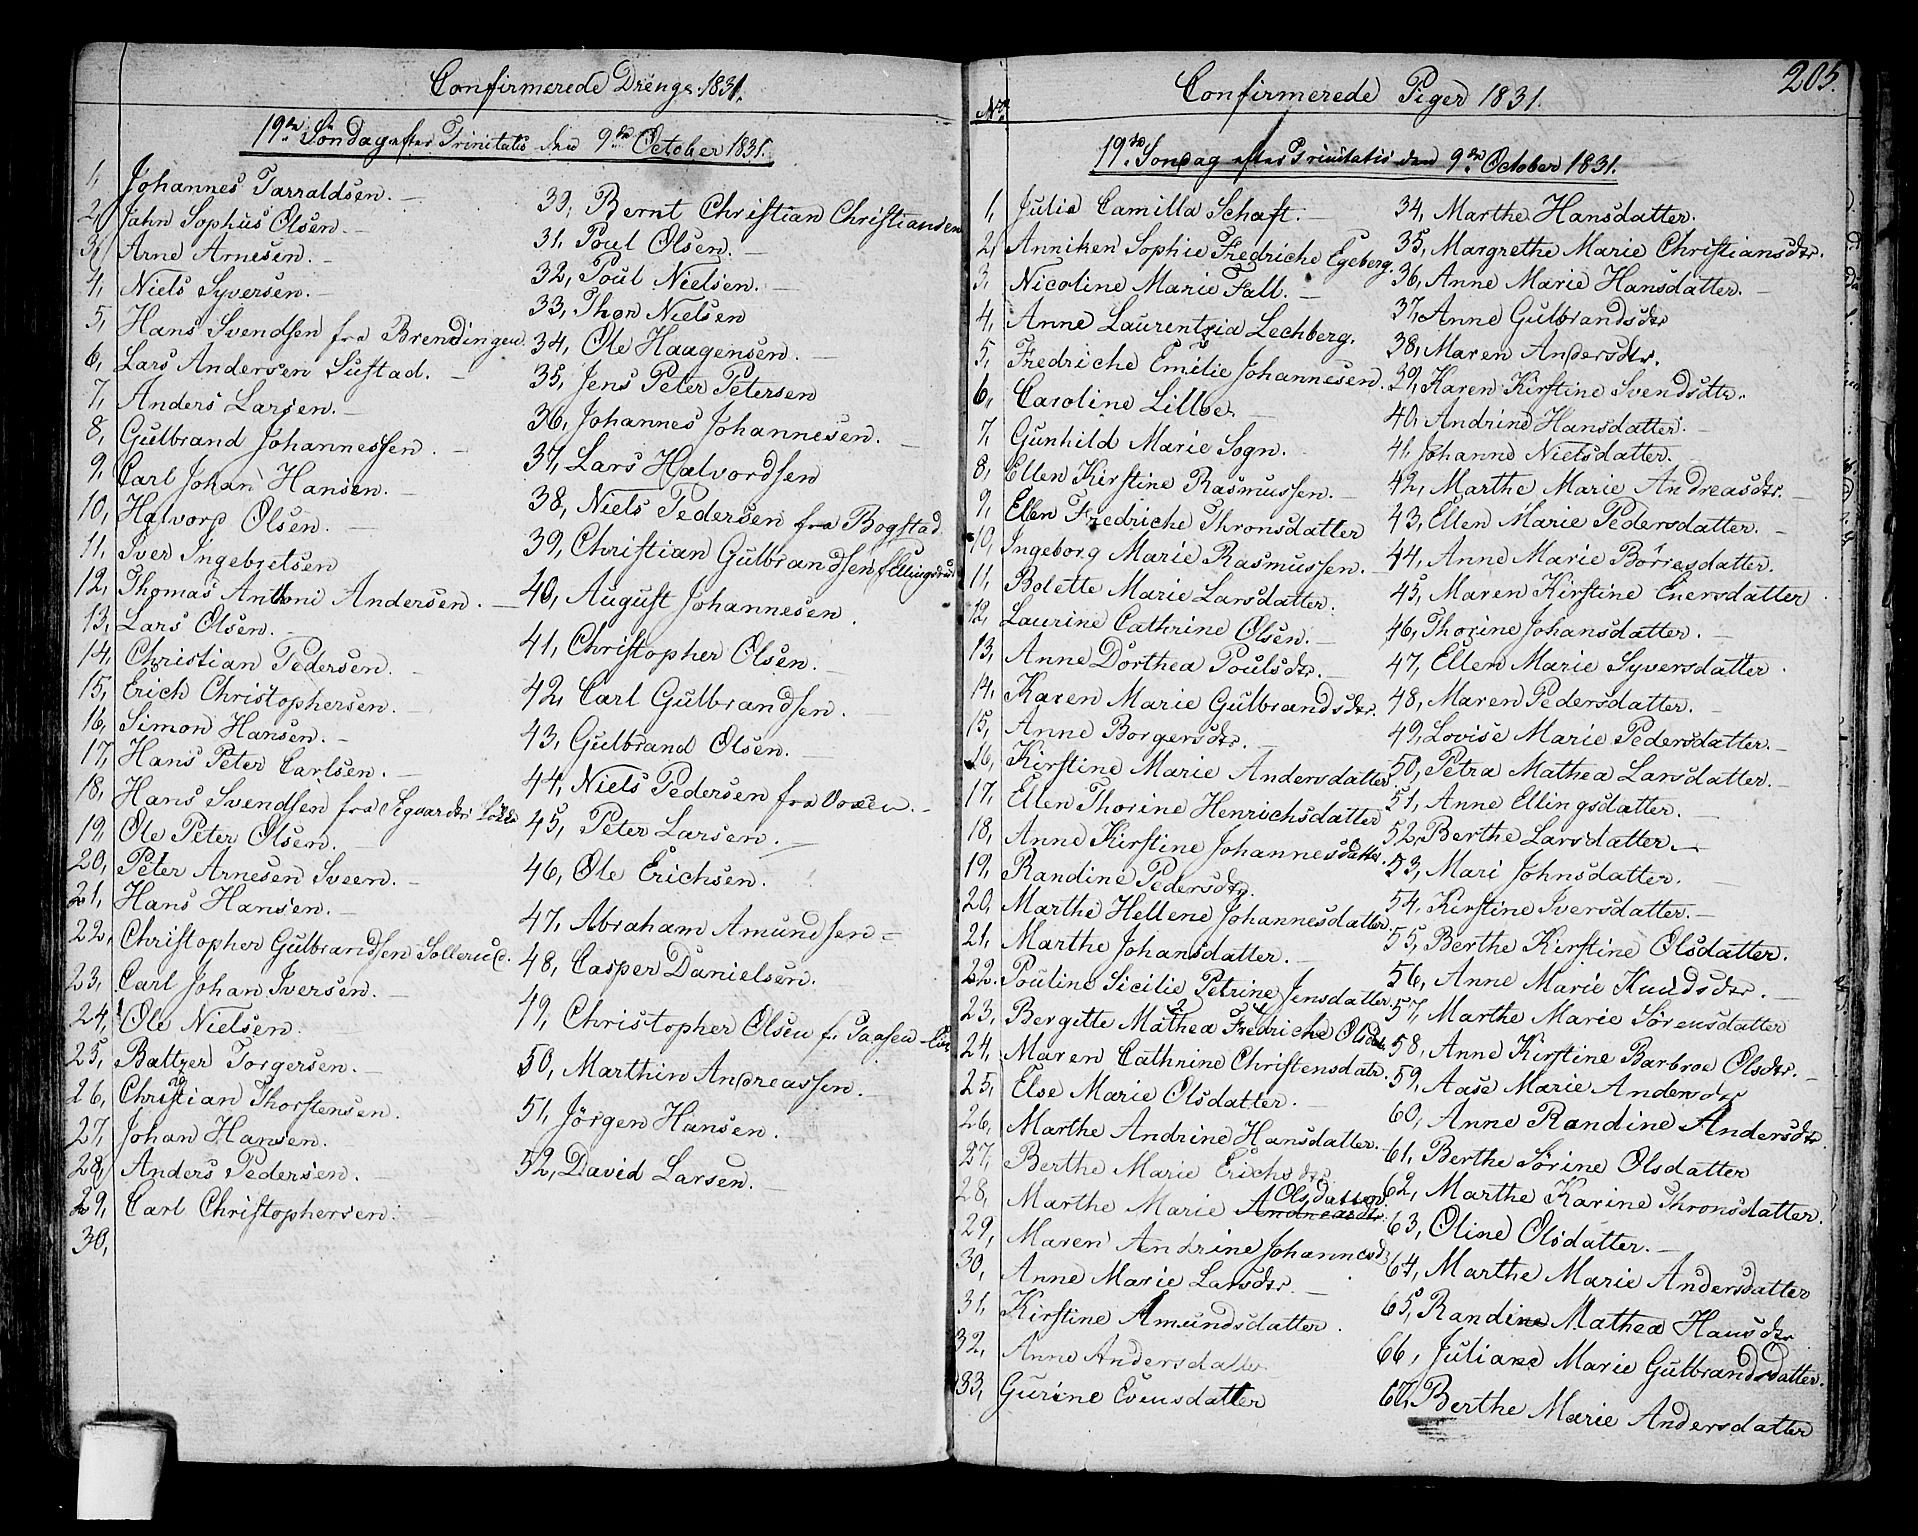 Confirmerede Drenge 1831.
19de Söndag efter Trinitatis den 9de October 1831.
1, Johannes Tarraldsen.
2, Jahn Sophus Olsen.
3, Arne Arnesen.
4, Niels Syversen.
5, Hans Svendsen fra Brendingen.
6, Lars Andersen Sustad.
7, Anders Larsen.
8, Gulbrand Johannessen.
9, Carl Johan Hansen.
10, Halvord Olsen.
11, Iver Ingebretsen
12, Thomas Anthoni Andersen.
13, Lars Olsen.
14, Christian Pedersen.
15, Erich Christophersen.
16, Simon Hansen.
17, Hans Peter Carlsen.
18, Hans Svendsen fra Løkke
19, Ole Peter Olsen.
20, Peter Arnesen Sveen.
21, Hans Hansen.
22, Christopher Gulbrandsen Sollerud.
23, Carl Johan Iversen.
24, Ole Nielsen.
25, Baltzer Torgersen.
26, Christian Thorstensen.
27, Johan Hansen.
28, Anders Pedersen.
29, Carl Christophersen.
30,
30, Bernt Christian Christiansen
31, Poul Olsen.
32, Poul Nielsen.
33, Thor Nielsen
34, Ole Haagensen.
35, Jens Peter Petersen
36, Johannes Johannesen.
37, Lars Halvordsen
38, Niels Pedersen fra Bogstad
39, Christian Gulbrandsen, f Ellingsrud
40, August Johannesen.
41, Christopher Olsen.
42, Carl Gulbrandsen.
43, Gulbrand Olsen.
44, Niels Pedersen fra Voxen.
45, Peter Larsen.
46, Ole Erichsen.
47, Abraham Amundsen
48, Casper Danielsen.
49, Christopher Olsen f. Taasen
50, Marthin Andreassen.
51, Jörgen Hansen.
52, David Larsen.
205.
Confirmerede Piger 1831.
No
19de Sondag efter Trinitatis den 9de October 1831.
1, Julia Camilla Schaft.
2, Anniken Sophie Fredriche Egeberg.
3, Nicoline Marie Fall.
4, Anne Laurentzia Lechberg.
5, Fredriche Emilie Johannesen.
6, Caroline Lilloe
7, Gunhild Marie Sogn.
8, Ellen Kirstine Rasmussen.
9, Ellen Fredriche Thronsdatter
10, Ingeborg Marie Rasmussen.
11, Bolette Marie Larsdatter.
12, Laurine Cathrine Olsen.
13, Anne Dorthea Poulsdtr.
14, Karen Marie Gulbrandsdtr.
15, Anne Borgersdtr.
16, Kirstine Marie Andersdatter.
17, Ellen Thorine Henrichsdatter
18, Anne Kirstine Johannesdatter.
19, Randine Pedersdtr.
20, Marthe Hellene Johannesdatter.
21, Marthe Johansdatter.
22, Pouline Sicilie Petrine Jensdatter.
23, Bergitte Mathea Fredriche Olsdtr.
24, Maren Cathrine Christensdatr.
25, Else Marie Olsdatter.
26, Marthe Andrine Hansdatter.
27, Berthe Marie Erichsdtr.
28, Marthe Marie Andreasdtr. Olsdatter
29, Maren Andrine Johannesd
30, Anne Marie Larsdtr.
31, Kirstine Amundsdatter.
32, Anne Andersdatter
33, Gurine Evensdatter
34, Marthe Hansdatter.
35, Margrethe Marie Christiansdtr.
36, Anne Marie Hansdatter.
37, Anne Gulbrandsdtr
38, Maren Andersdtr.
39, Karen Kirstine Svendsdtr.
40, Andrine Hansdatter.
41, Johanne Nielsdatter.
42, Marthe Marie Andreasdtr.
43, Ellen Marie Pedersdatter.
44, Anne Marie Börresdatter.
45, Maren Kirstine Enersdatter.
46, Thorine Johansdatter.
47, Ellen Marie Syversdatter.
48, Maren Pedersdatter.
49, Lovise Marie Pedersdatter.
50, Petra Mathea Larsdatter.
51, Anne Ellingsdatter.
52, Berthe Larsdatter.
53, Mari Johnsdatter.
54, Kirstine Iversdatter.
55, Berthe Kirstine Olsdatter.
56, Anne Marie Knudsdtr.
57, Marthe Marie Sörensdatter
58, Anne Kirstine Barbroe Olsdtr.
59, Aase Marie Andersdtr
60, Anne Randine Andersdtr
61, Berthe Sörine Olsdatter
62, Marthe Karine Thronsdatter.
63, Oline Olsdatter.
64, Marthe Marie Andersdatter
65, Randine Mathea Hansdtr
66, Juliane Marie Gulbrandsdatter.
67, Berthe Marie Andersdatter